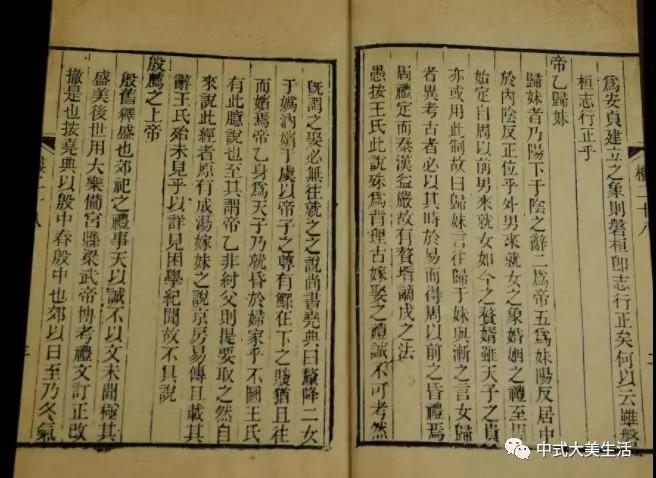 為安貞建立之象則磐桓卽志行正矣何以云雖磐
桓志行正乎
帝乙歸妹
歸妹者乃陽下于陰之辭二為帝五為妹陽反居中
於内陰反正位乎外男來就女之象婚姻之禮至周
始定自周以前男來就女如今之贅婿雖天子之貴
亦或用此制故曰歸妹言往歸于妹與漸之言女歸
者異考古者必以其時於易而得周以前之昏禮焉
周禮定而秦漢益嚴故有贅壻謫戍之法
愚按王氏此說殊為背理古嫁娶之禮誠不可考然
既謂之娶必無往就之之說尚書堯典曰釐降二女
于媯汭嬪于虞以帝子之尊有鰥在下之賤猶且往
而嬪焉帝乙身為天子乃就昏於婦家乎不圖王氏
有此臆說也至其謂帝乙非紂父則提要取之然自
來說此經者原有成湯嫁妹之說京房易傳且載其
辭王氏殆未見乎以詳見困學紀聞故不具說
殷薦之上帝
殷舊釋盛也郊祀之禮事天以誠不以文未聞極其
盛美後世用大樂備宮縣梁武帝博考禮文訂正改
撤是也按堯典以殷中春殷中也郊以日至乃冬氣
中式大美生活